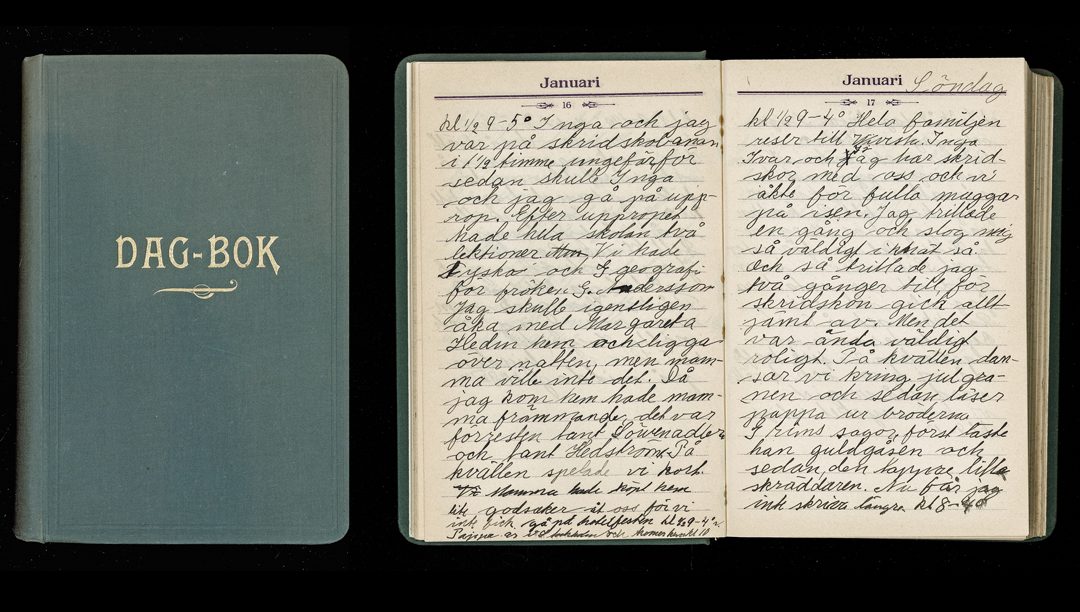 DAG-BOK
Januari
16
kl ½ 9-5° Inga och jag
var på skridskobanan
i 1½ timme ungefär för
sedan skulle Inga
och jag gå på upp-
rop. Efter uppropet
hade hela skolan två
lektioner Vi hade
Tyska och geografi
för fröken G. Andersson
Jag skulle igentligen
åka med Margareta
Hedin hem och ligga
över natten, men mam-
ma ville inte det. Då
jag kom hem hade mam-
ma främmande, det var
förresten tant Löwenadler
och tant Hedström. På
kvällen spelade vi kort.
Vi Mamma hade köpt hem
lite godsaker åt oss för vi
inte fick gå på hotellfesten kl ½ 9-4°
Pappa är och kommer kl 10
Januari Söndag
17
kl ½ 9-4° Hela familjen
reser till Inga
Ivar och jag har skrid-
skor med oss och vi
åkte för fulla muggar
på isen. Jag trillade
en gång och slog mig
så väldigt i knät så
Och så trillade jag
två gånger till för
skridskon gick allt
jämt av. Men det
var ända väldigt
roligt. På kvällen dan-
sar vi kring julgra-
nen och sedan läser
pappa ur bröderna
Grims sagor, först läste
han guldgåsen och
sedan den tappre lilla
skräddaren. Nu får jag
inte skriva längre kl 8-4°